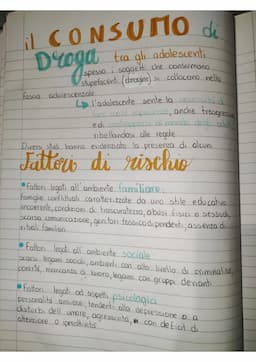 il CONSUMO di
Droga tra gli adolescenti
spesso i soggetti che consumano
stupefacenti (droghe) si collocano nella
fascia adolescenziale
l'adolescente sente la
anche trasgressive
ed
ribellandosi alle regole
Diversi studi hanno evidenziato la presenza di alcuni
Fattori di rischio
• Fattori legati all'ambiente familiare:
famiglie conflittuali caratterizzate da uno stile educativo
incoerente, condizioni di trascuratezza, abusi fisici e sessuali,
scarsa comunicazione, genitori tossicodipendenti, assenza di
rituali familiari
• Fattori legati all'ambiente sociale
scarsi legami sociali, ambienti con alto livello di criminalità,
povertà, mancanza di lavoro, legami con gruppi devianti
• Fattori legati ad aspetti psicologici
personalità tendenti alla depressione o a
disturbi dell'umore, aggressività, con deficit di
attenzione o